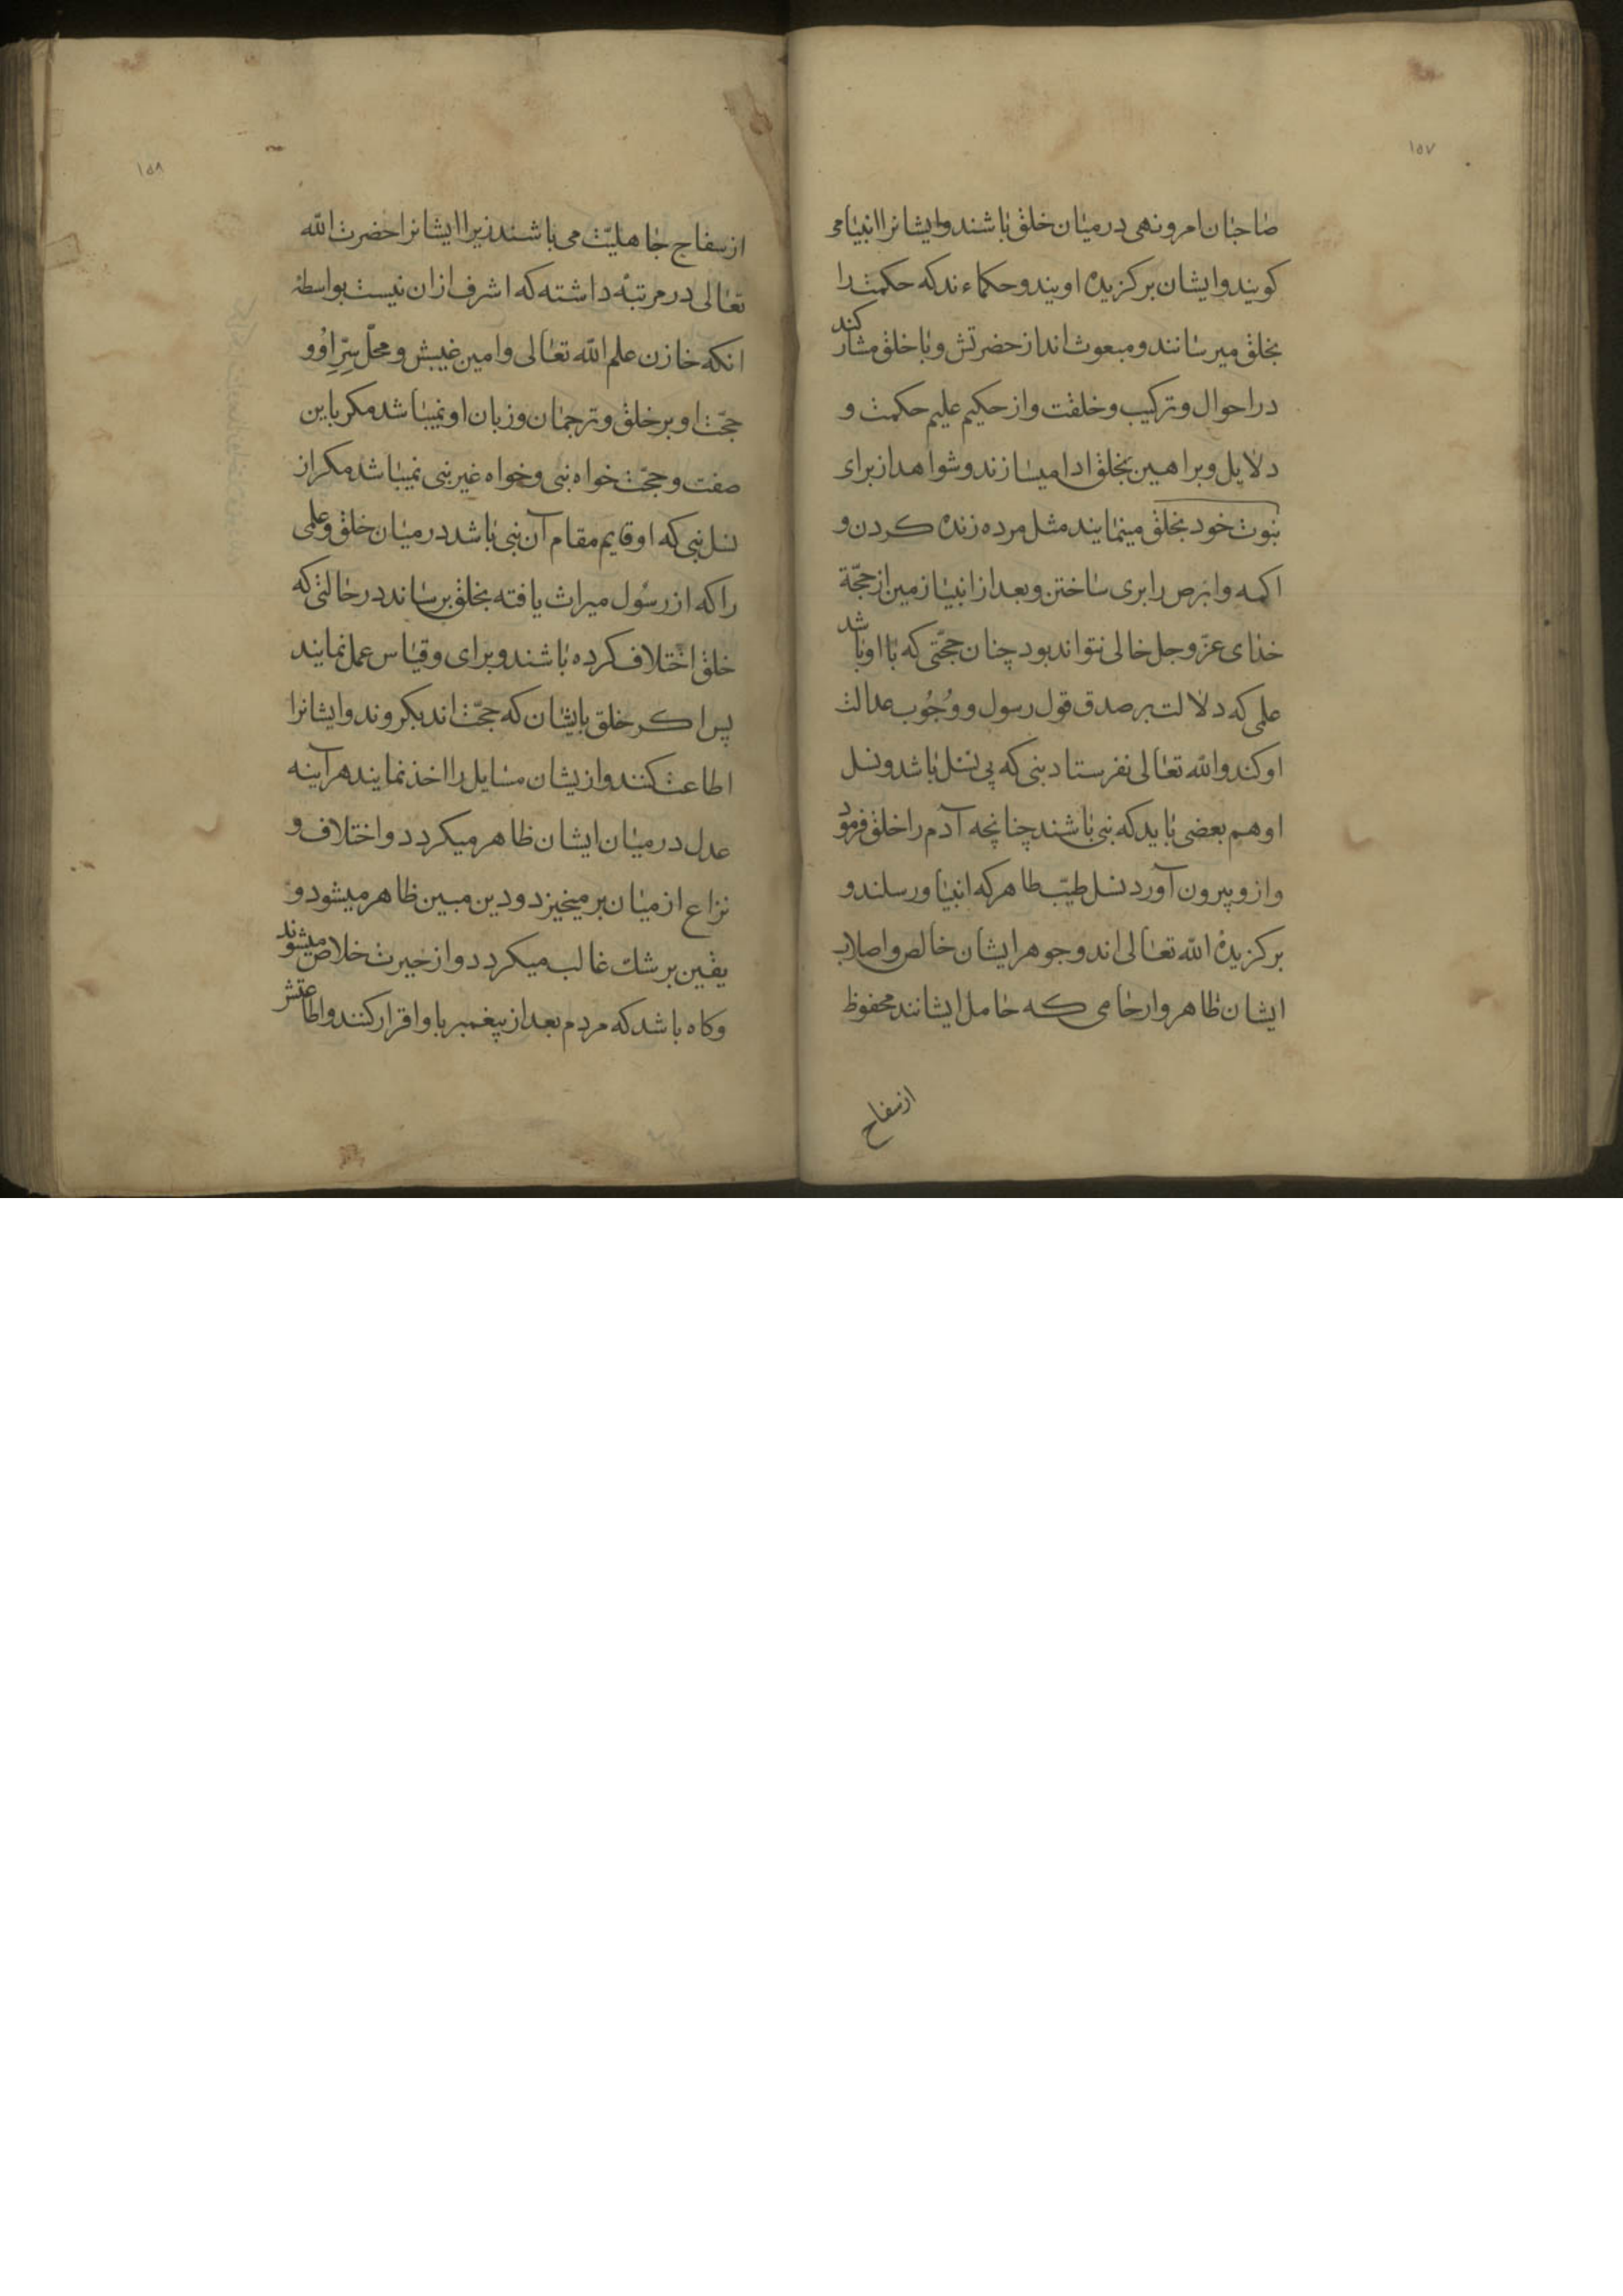 ۱۵۷
صاحبان امر و نهی در میان خلق باشند و ایشانرا انبیا می
کویند و ایشان برکزیده اویند و حکماء ند که حکمت را
بخلق میرسانند و مبعوث اند از حضرتش و با خلق مشارکند
در احوال و ترکیب و خلقت و از حکیم علیم حکمت و
دلایل و براهین بخلق ادا میسازند و شواهد از برای
نبوت خود بخلق مینمایند مثل مرده زنده کردن و
اکمه و ابرص را بری ساختن و بعد از انبیا زمین از حجّة
خدای عزّ و جل خالی نتواند بود چنان حجّتی که با او باشد
علمی که دلالت بر صدق قول رسول و وجُوب عدالت
او کند و الله تعالی نفرستاد نبی که بی نسل باشد و نسل
او هم بعضی باید که نبی باشند چنانچه آدم را خلق فرمود
و ازو بیرون آورد نسل طیّب طاهر که انبیا و رسلند و
برکزیدهٔ الله تعالی اند و جوهر ایشان خالص و اصلاب
ایشان طاهر و ارحامی که حامل ایشانند محفوظ
از سفاح
۱۵۸
از سفاح جاهلیّت می باشند زیرا ایشانرا حضرت الله
تعالی در مرتبهٔ داشته که اشرف ازان نیست بواسطهٔ
انکه خازن علم الله تعالی و امین غیبش و محلّ سِرِّ اوُ و
حجّت او بر خلق و ترجمان و زبان او نمیباشد مکر باین
صفت و حجّت خواه نبی و خواه غیر نبی نمیباشد مکر از
نسل نبی که او قایم مقام آن نبی باشد در میان خلق و علمی
را که از رسُول میراث یافته بخلق برساند در حالتی که
خلق اختلاف کرده باشند و برای و قیاس عمل نمایند
پس اکر خلق بایشان که حجّت اند بکروند و ایشانرا
اطاعت کنند و ازیشان مسایل را اخذ نمایند هرآینه
عدل در میان ایشان ظاهر میکردد و اختلاف و
نزاع از میان برمیخیزد و دین مبین ظاهر میشود و
یقین بر شک غالب میکردد و از حیرت خلاص میشوند
وکاه باشد که مردم بعد از پیغمبر باو اقرار کنند و اطاعتش